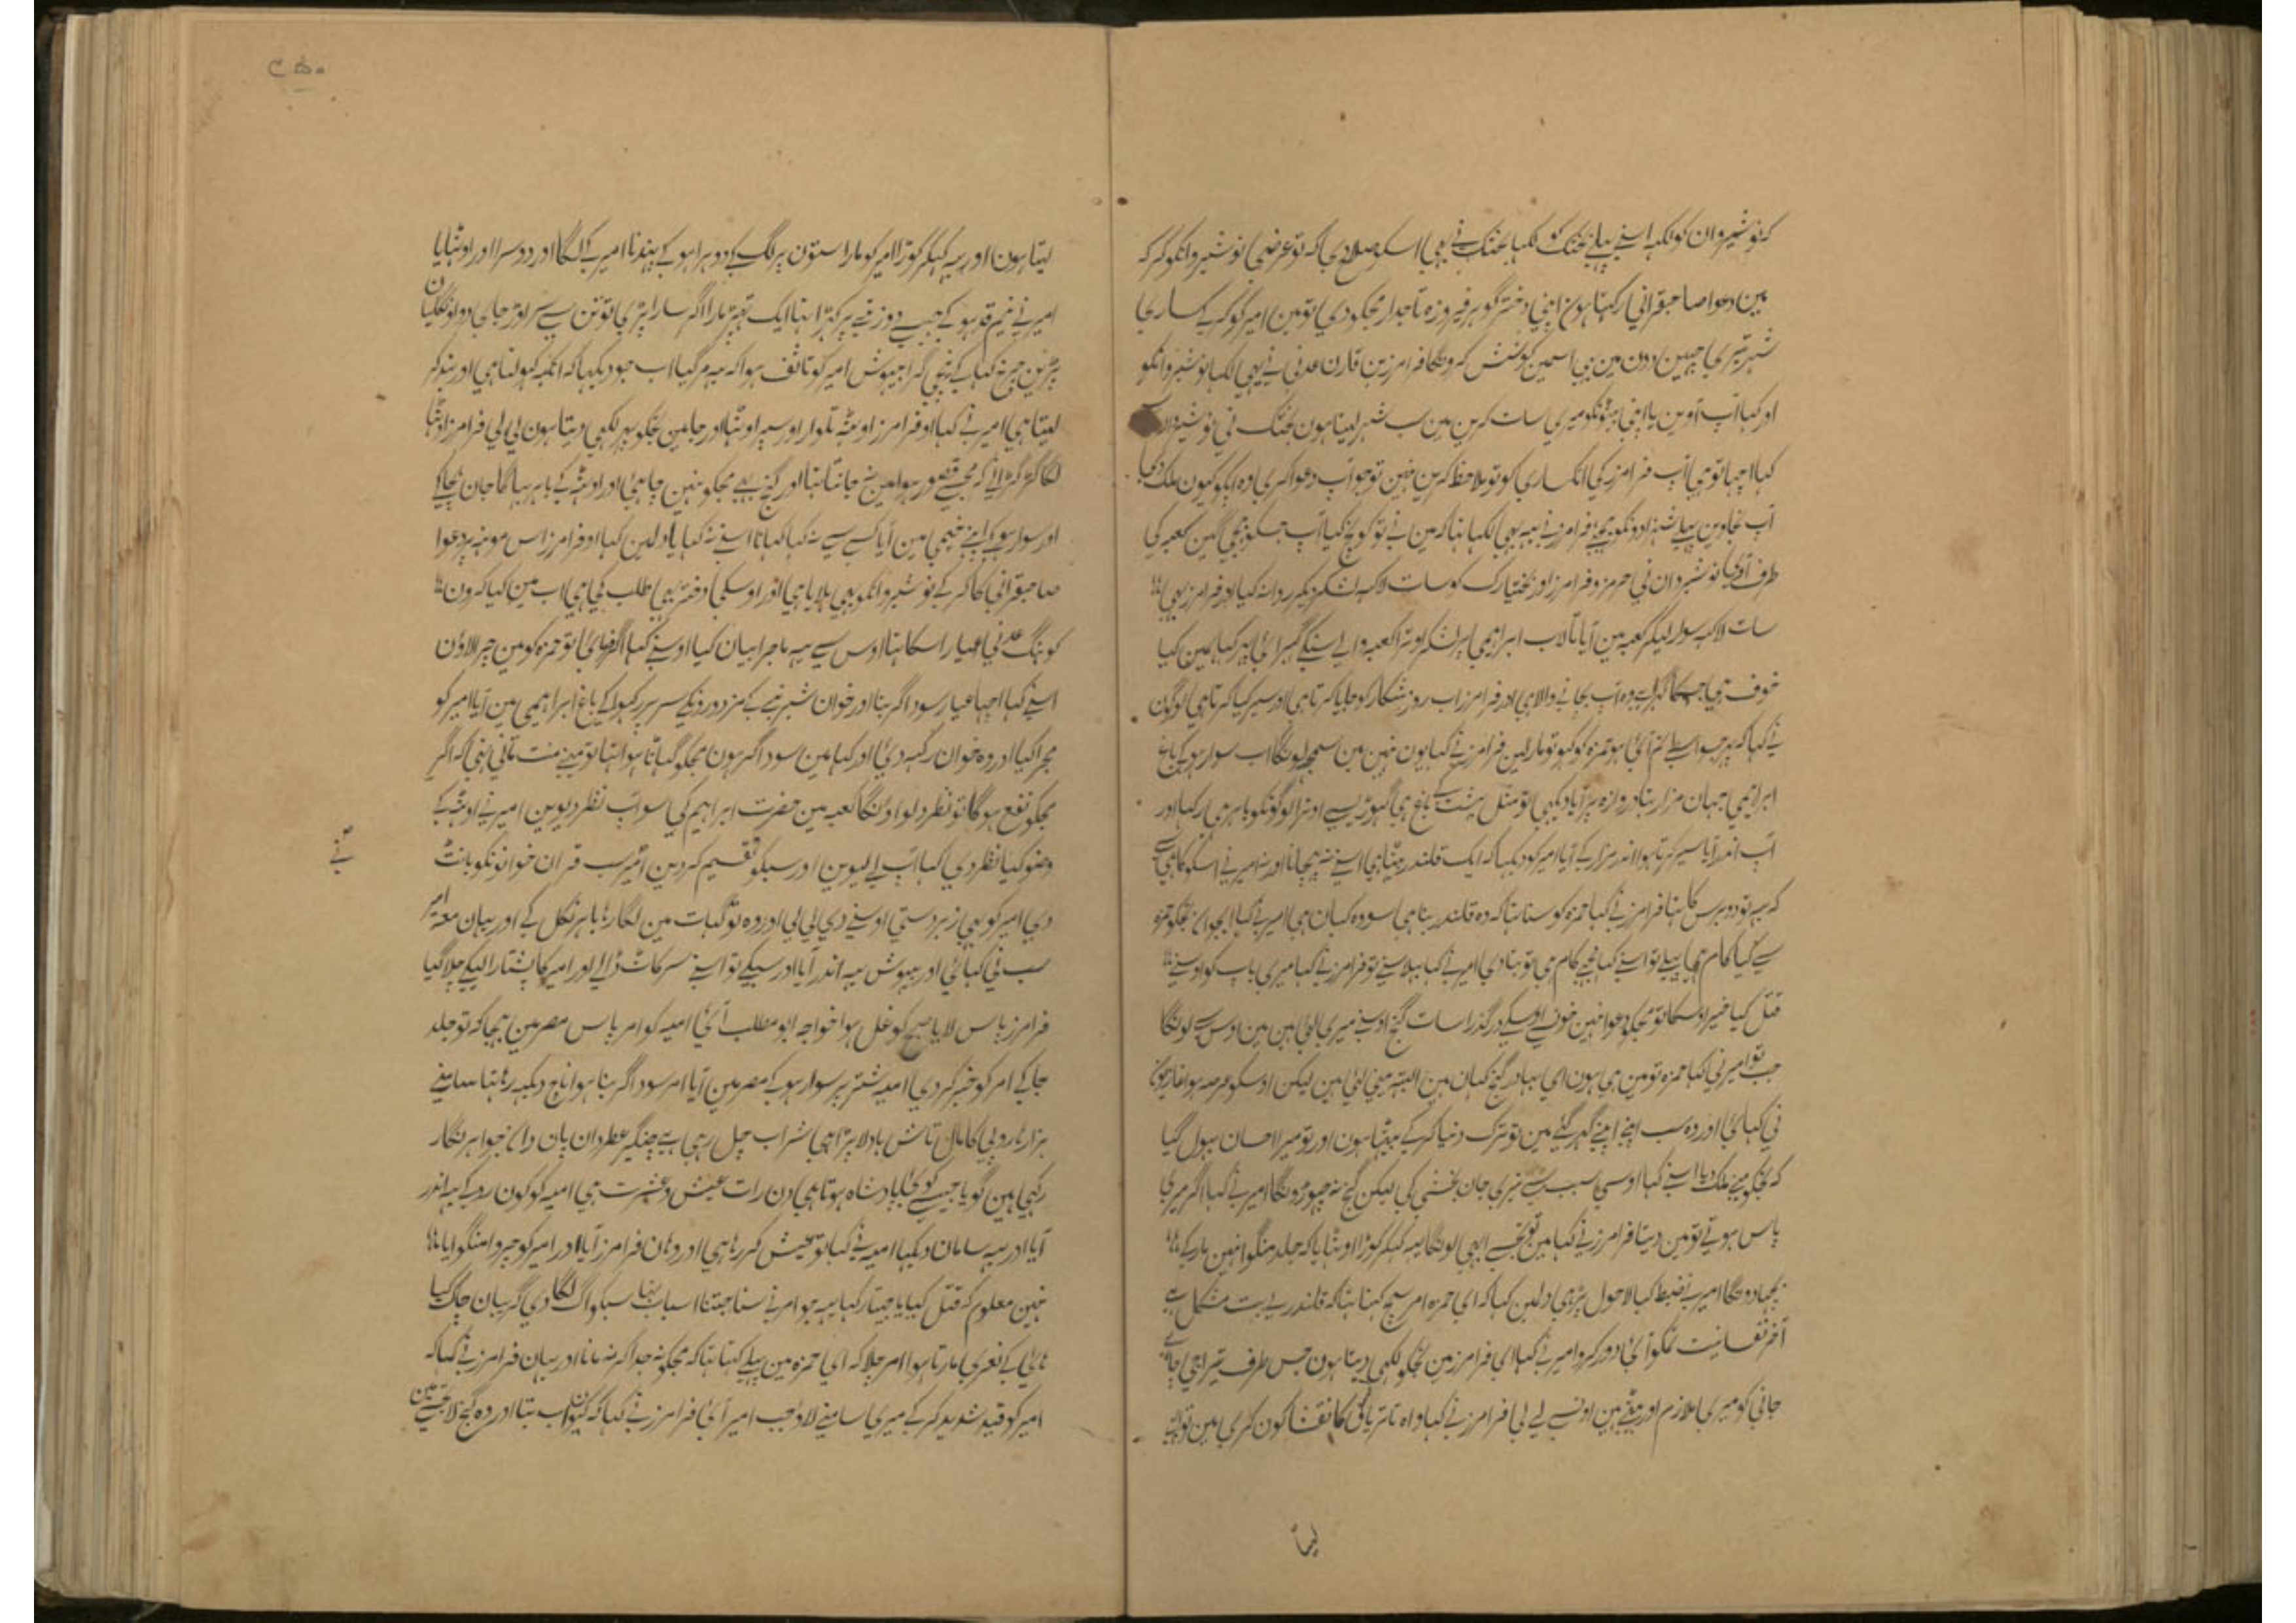 کہ نوشیروان کو لکہہ اپنے پہلے بختک کو لکہا بختک نے بہی اسکو صلاح دی کہ تو عرضی نوشیروانکو کر کہ
مین دعوا صاحبقرانی رکہتا ہون اپنی دختر گوہر فیروزہ تاجدار مجکو دی تو مین امیر کو کہ
شہر تیری چہین دون مین بی اسمین کوشش کرونگا فرامرز بن قارن عدنی نے یہی لکہا نوشیروانکو
اور کہا آپ آوین یا اپنی بیٹونکو میری سات کرین مین سب شہر لیتا ہون بختک نی نوشیروان سے
کہا اچہا تو ہی آپ فرامرز کی انکساری کو تو ملاحظہ کرین نہین تو جو آپ دعوا کری وہ آپکو کیون ملک دی
آپ نجاوین پہلے شہزادونکو بہیجے فرامرز نے یہہ بہی لکہا تہا کہ مین نے تو کوچ کیا آپ جسکو بہیجین کعبہ کی
طرف آوی نوشیروان نی ہرمز و فرامرز اور بختیارک کو سات لاکہہ لشکر دیکر روانہ کیا اور فرامرز بہی
سات لاکہہ سوار لیکر کعبہ مین آیا تالاب ابراہیمی پر لشکر اوترا کعبہ والے سنکے گہبرائی پہر کہا ہمین کیا
خوف ہی جسکا گہر ہے وہ آپ بچانے والا ہی اور فرامرز اب روز شکار کو جایا کرتا ہی اور سیر کیا کرتا ہی لوگون
نے کہا کہ پہر جو اسطے تم آئی ہو حمزہ کو کہو تو مار لین فرامرز نے کہا یون نہین مین سمجہہ لونگا اب سوار ہو کے باغ
ابراہیمی جہان مزار بنا دروازہ پر آیا دیکہی تو مثل بہشت کے باغ ہی گہوڑیسے اوترا لوگونکو باہر ہی رکہا اور
آپ اندر آیا سیر کرتا ہوا اندر مزار کے آیا امیر کو دیکہا کہ ایک قلندر بیٹہا ہی اسنے نہ پہچانا اور نہ امیر نے اسکو
کہ یہہ تو دو برس کا تہا فرامرز نے کہا حمزہ کو سنا تہا کہ وہ قلندر بنا ہی سو وہ کہان ہی امیر نے کہا ای جوان تجکو حمزہ
سے کیا کام ہی پہلے تو اسنے کہا مجہے کام ہی تو بتا دی امیر نے کہا پہلا سنے تو فرامرز نے کہا میری باپ کو اوسنے
قتل کیا خیر اوسکا تو مجکو دعوا نہین خون اوسکے درگذرا سات گنج اوسنے میری لئے ہین مین اوس سے لونگا
جب تو امیر نی کہا حمزہ تو مین ہی ہون ای بہادر گنج کہان ہین البتہ مینی لئی ہین لیکن اوسکو عرصہ ہوا
نی کہائی اور وہ سب اپنے اپنے گہر گئے مین تو ترک دنیا کر کے بیٹہا ہون اور تو میرا احسان بہول گیا
کہ تجکو مینے ملک دیا اسنے کہا اوسی سبب سے تیری جان بخشی کی لیکن گنج نہ چہوڑونگا امیر نے کہا اگر میری
پاس ہوتے تو مین دیتا فرامرز نے کہا مین تو تجسے ابہی لونگا یہہ کہکر کوڑا اوٹہایا کہ جلد منگوا نہین مار کے
بچہا دونگا امیر نے ضبط کیا لاحول پڑہی دلمین کہا کہ ای حمزہ امر سچ کہتا تہا کہ قلندری بہت مشکل ہے
آخر نفسانیت تمکو آئی دور کرو امیر نے کہا ای فرامرز مین تجکو لکہی دیتا ہون جس طرف تیرا جی چاہے
جانی کو میری ملازم اور بیٹے ہین اونسے لے لی فرامرز نے کہا واہ تاتریاقی کا نقشا کون کری مین تو ابہی
لیتا
۴۵۰
لیتا ہون اور یہہ کہکر کوڑا امیر کو مارا ستون پر لگ کے دوہرا ہو کے پہندنا امیر کے لگا اور دوسرا اور اوٹہایا
امیر نے نیم قد ہو کے جیسے دوزانے پر کہڑا تہا ایک تہپڑ مارا اگر سارا پڑی تو تن سے سر اوڑ جاوی دو اونگلیان
پڑین چرخ کہا کے نیچی گرا بیہوش امیر کو تاسف ہوا کہ یہہ مر گیا اب جو دیکہا کہ آنکہہ کہولتا ہی اور بند کر
لیتا ہی امیر نے کہا او فرامرز اوٹہہ تلوار اور سپر اوٹہا اور جا مین تجکو پہر لکہی دیتا ہون لی لی فرامرز اوٹہا
لگا گڑگڑانے کہ مجسے قصور ہوا مین نہ جانتا تہا اور گنج بہی مجکو نہین چاہئی اور اوٹہہ کے باہر بہاگا جان بچا کے
اور سوار ہو کے اپنے خیمی مین آیا کسے سے نہ کہا کہانا اسنے نہ کہایا دلمین کہا او فرامرز اس مونہہ پر دعوا
صاحبقرانی کا کر کے نوشیروانکو بہی بلایا ہی اور اوسکی دختر بہی طلب کی ہی اب مین کیا کرون
کوہنگ عدنی عیار اسکا تہا اوس سے یہہ ماجرا بیان کیا اوسنے کہا اگر فرمائی تو حمزہ کو مین چرا لاؤن
اسنے کہا اچہا عیار سوداگر بنا اور خوان شیرنیے کے مزدورونکے سر پر رکہوا کے باغ ابراہیمی مین آیا امیر کو
مجرا کیا اور وہ خوان رکہہ دئی اور کہا مین سوداگر ہون مجکو گہاٹا ہوا تہا تو مینے منت مانی تہی کہ اگر
مجکو نفع ہوگا تو نظر دلواونگا کعبہ مین حضرت ابراہیم کی سو آپ نظر دیوین امیر نے اوٹہہ کے
وضو کیا نظر دی کہا آپ لے لیوین اور سبکو تقسیم کر دین امیر نے سب قران خوانونکو بانٹ
دی امیر کو بہی زبردستی اوسنے دی لی لی اور وہ تو گہات مین لگا رہا باہر نکل کے اور یہان معہ امیر
سب نی کہائی اور بیہوش یہہ اندر آیا اور سبکے تو اسنے سر کاٹ ڈالے اور امیر کا پشتارا لیکے چلا گیا
فرامرز پاس لایا صبح کو غل ہوا خواجہ ابو مطلب آئی امیہ کو امر پاس مصر مین بہیجا کہ تو جلد
جا کے امر کو خبر کر دی امیہ شتر پر سوار ہو کے مصر مین آیا امر سوداگر بنا ہوا ناچ دیکہہ رہا تہا سامنے
ہزارہا روپی کا مال تاش بادلا پڑا ہی شراب چل رہی ہے چنگیر عطردان پان دان جواہر نگار
رکہی ہین گویا جیسے کوئی بادشاہ ہوتا ہی دن رات عیش و عشرت ہی امیہ کو کون روکے یہہ اندر
آیا اور یہہ سامان دیکہا امیہ نے کہا تو عیش کر رہا ہی اور وہان فرامرز آیا اور امیر کو چروا منگوایا
نہین معلوم کہ قتل کیا یا جیتا رکہا یہہ جو امر نے سنا جتنا اسباب تہا سبکو آگ لگا دی گریبان چاک کیا
ہائی کے نعری مارتا ہوا امر چلا کہ ای حمزہ مین پہلے کہتا تہا کہ مجکو نہ جدا کر نہ مانا اور یہان فرامرز نے کہا کہ
امیر کو قید شدید کر کے میری سامنے لاؤ جب امیر آئی فرامرز نے کہا کہ کیون اب بتا اور وہ گنج لا
نے